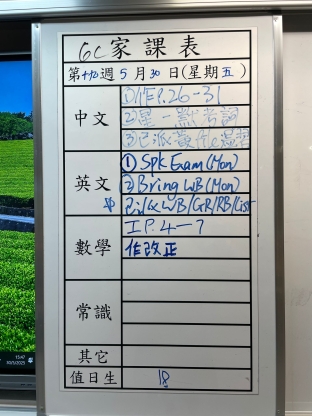 6C家課表
第十佗週5月30日(星期五)
中文
①作P.26-31
②星一默書詞
③已派
英文
① Spk Exam (Mon)
② Bring WB (Mon)
WB/GR/RB/List
數學
I P.4-7
作改正
常識
其它
值日生
18
15:47
30/5/2025